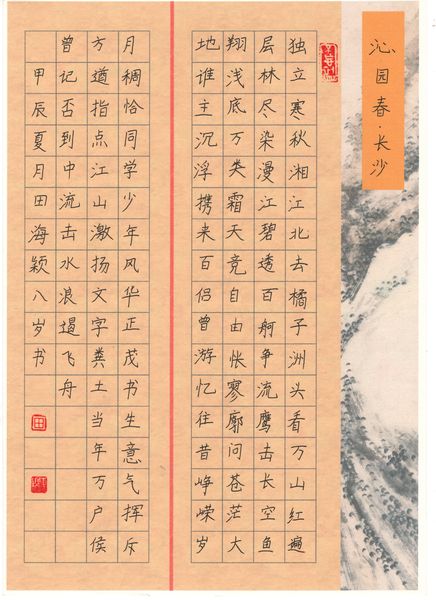 沁园春·长沙
独立寒秋湘江北去橘子洲头看万山红遍
层林尽染漫江碧透百舸争流鹰击长空鱼
翔浅底万类霜天竞自由怅寥廓问苍茫大
地谁主沉浮携来百侣曾游忆往昔峥嵘岁
月稠恰同学少年风华正茂书生意气挥斥
方遒指点江山激扬文字粪土当年万户侯
曾记否到中流击水浪遏飞舟
甲辰夏月田海颖八岁书